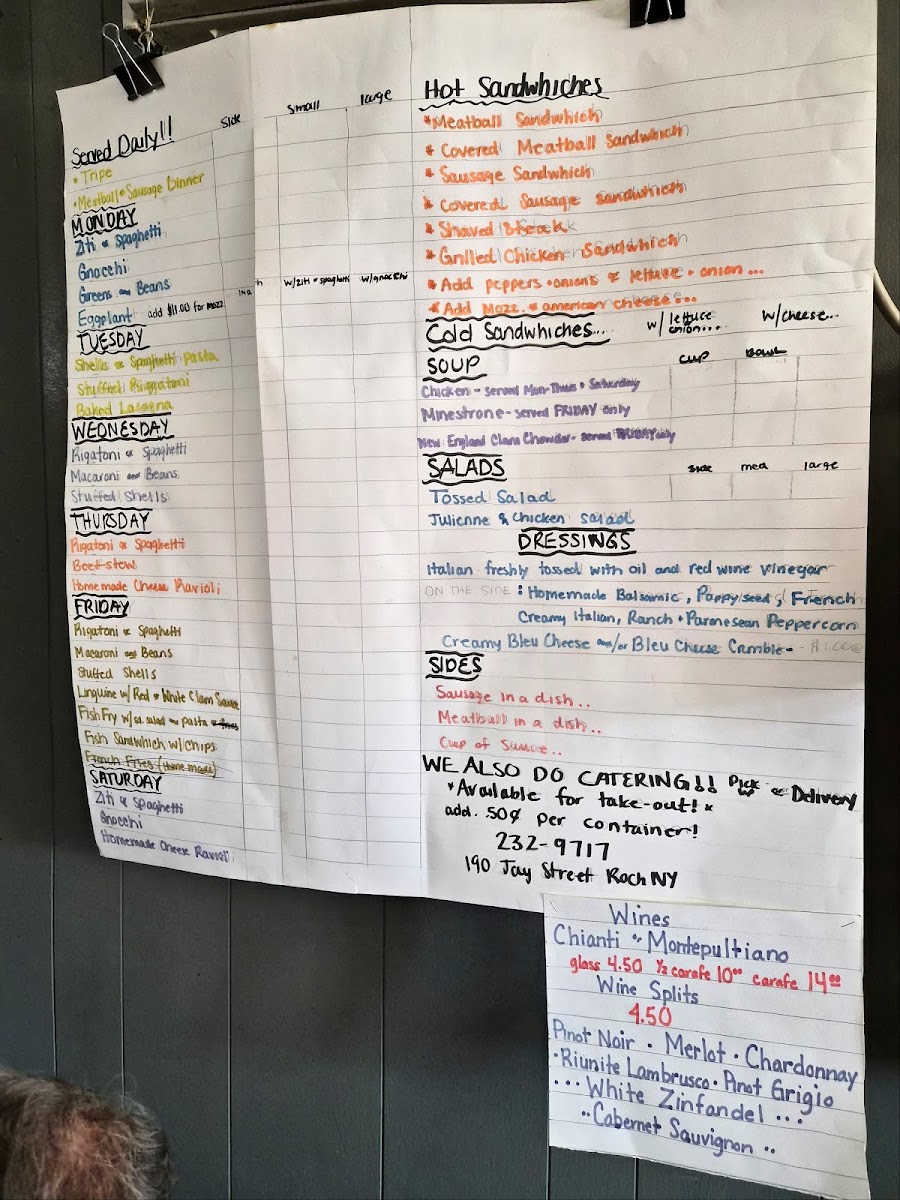 Served Daily!!
Side
small
large
* Tripe
* Meatball or Sausage Dinner
MONDAY
Ziti or Spaghetti
Gnocchi
Greens and Beans
w/ziti or spaghetti
w/gnocchi
Eggplant add $1.00 for mozz
TUESDAY
Shells or Spaghetti pasta
Stuffed Riggatoni
Baked Lasagna
WEDNESDAY
Rigatoni or Spaghetti
Macaroni and Beans
Stuffed Shells
THURSDAY
Rigatoni or Spaghetti
Beef stew
Homemade Cheese Ravioli
FRIDAY
Rigatoni or Spaghetti
Macaroni and Beans
Stuffed Shells
Linguine w/Red or White Clam Sauce
Fish Fry w/sm. salad or pasta or fries
Fish Sandwhich w/chips
French Fries (Homemade)
SATURDAY
Ziti or Spaghetti
Gnocchi
Homemade Cheese Ravioli
Hot Sandwhiches
* Meatball Sandwhich
* Covered Meatball Sandwhich
* Sausage Sandwhich
* Covered Sausage Sandwhich
* Shaved Steak
* Grilled Chicken Sandwhich
* Add peppers + onions or lettuce + onion ...
* Add Mozz. or american cheese...
Cold Sandwhiches... w/lettuce onion.... w/cheese...
SOUP cup bowl
Chicken - served Mon-Thurs + Saturday
Minestrone - served FRIDAY only
New England Clam Chowder - served FRIDAY only
SALADS side med large
Tossed Salad
Julienne & Chicken salad
DRESSINGS
Italian freshly tossed with oil and red wine vinegar
ON THE SIDE: Homemade Balsamic, Poppyseed, French
Creamy Italian, Ranch + Parmesean Peppercorn
Creamy Bleu Cheese and/or Bleu Cheese Crumble - $1.00
SIDES
Sausage in a dish..
Meatball in a dish..
Cup of Sauce..
WE ALSO DO CATERING!! Pick up or Delivery
*Available for take-out!*
add .50¢ per container!
232-9717
190 Jay Street Roch NY
Wines
Chianti or Montepultiano
glass 4.50 ½ carafe 10.00 carafe 14.00
Wine Splits
4.50
Pinot Noir • Merlot • Chardonnay
• Riunite Lambrusco • Pinot Grigio
... White Zinfandel ...
.. Cabernet Sauvignon ..